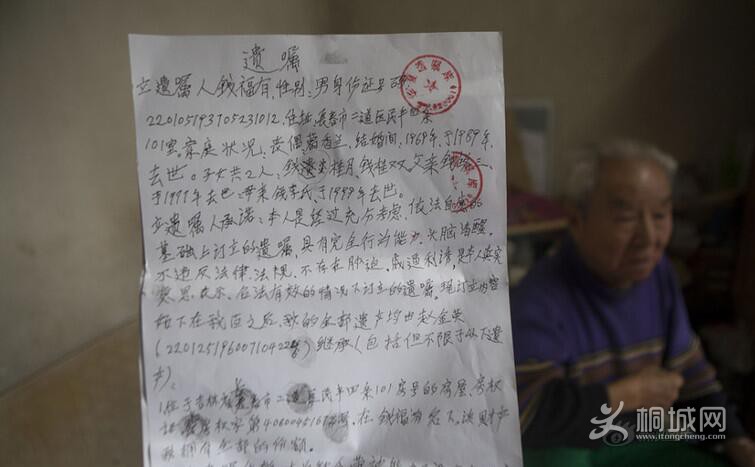 遗嘱
立遗嘱人钱福有,性别:男身份证号码
220105193705231012,住址:长春市二道区民丰四条
101室。家庭状况:丧偶葛香兰,结婚时间:1969年、于1989年
去世。子女共2人:钱桂月、钱桂双、父亲钱三、
于1997年去世、母亲钱李氏、于1999年去世。
立遗嘱人承诺:本人是经过充分考虑、依法自愿的
基础上订立的遗嘱,具有完全行为能力、大脑清醒、
不违反法律、法规、不存在胁迫、威逼利诱,是本人真实
意思表示、合法有效的情况下订立的遗嘱。现订立内容
如下在我百之后、我的全部遗产均由赵金英
(22012519600710422)继承(包括但不限于以下遗
产)。
1.位于吉林省长春市二道区民丰四条101房号的房屋、房权
证字第4060045167号、在钱福有名下。该财产
我拥有全部的份额。
桐城网
www.itongcheng.com